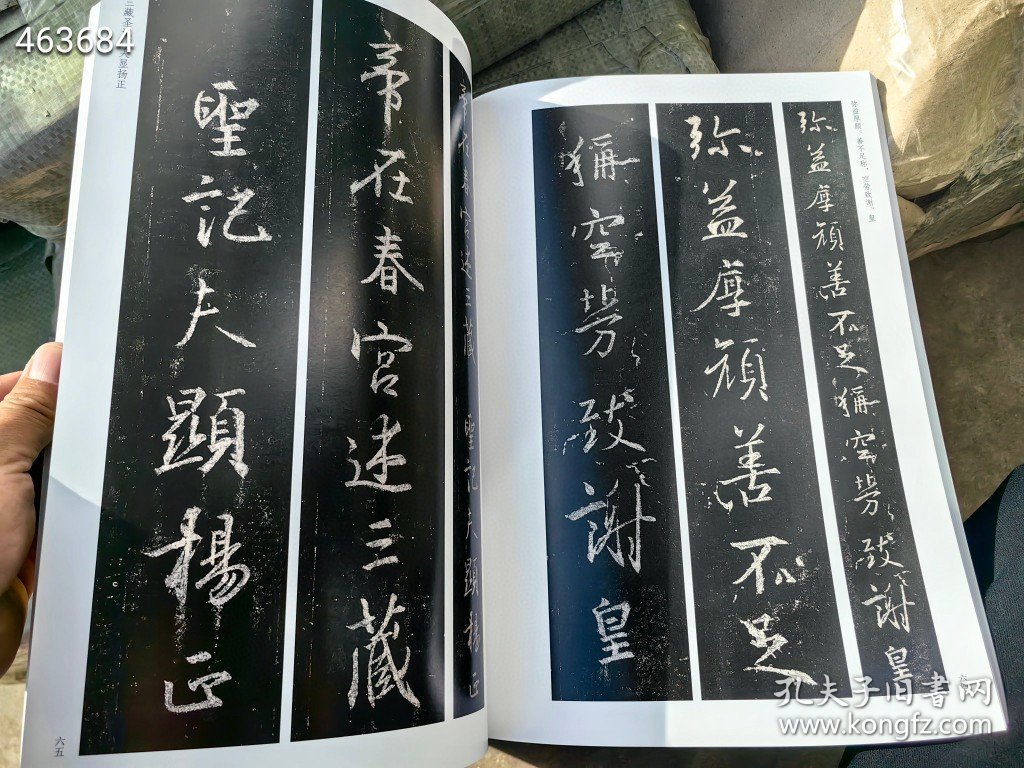 463684
弥益厚颜，善不足称，空劳致谢。皇
弥益厚顏善不足稱空勞致謝皇
弥益厚顏善不足
稱空勞致謝皇
在春宮述三藏聖記夫顯揚正
帝在春宮述三藏
聖記夫顯揚正
三藏圣
显扬正
六五
孔夫子旧書网
www.kongfz.com